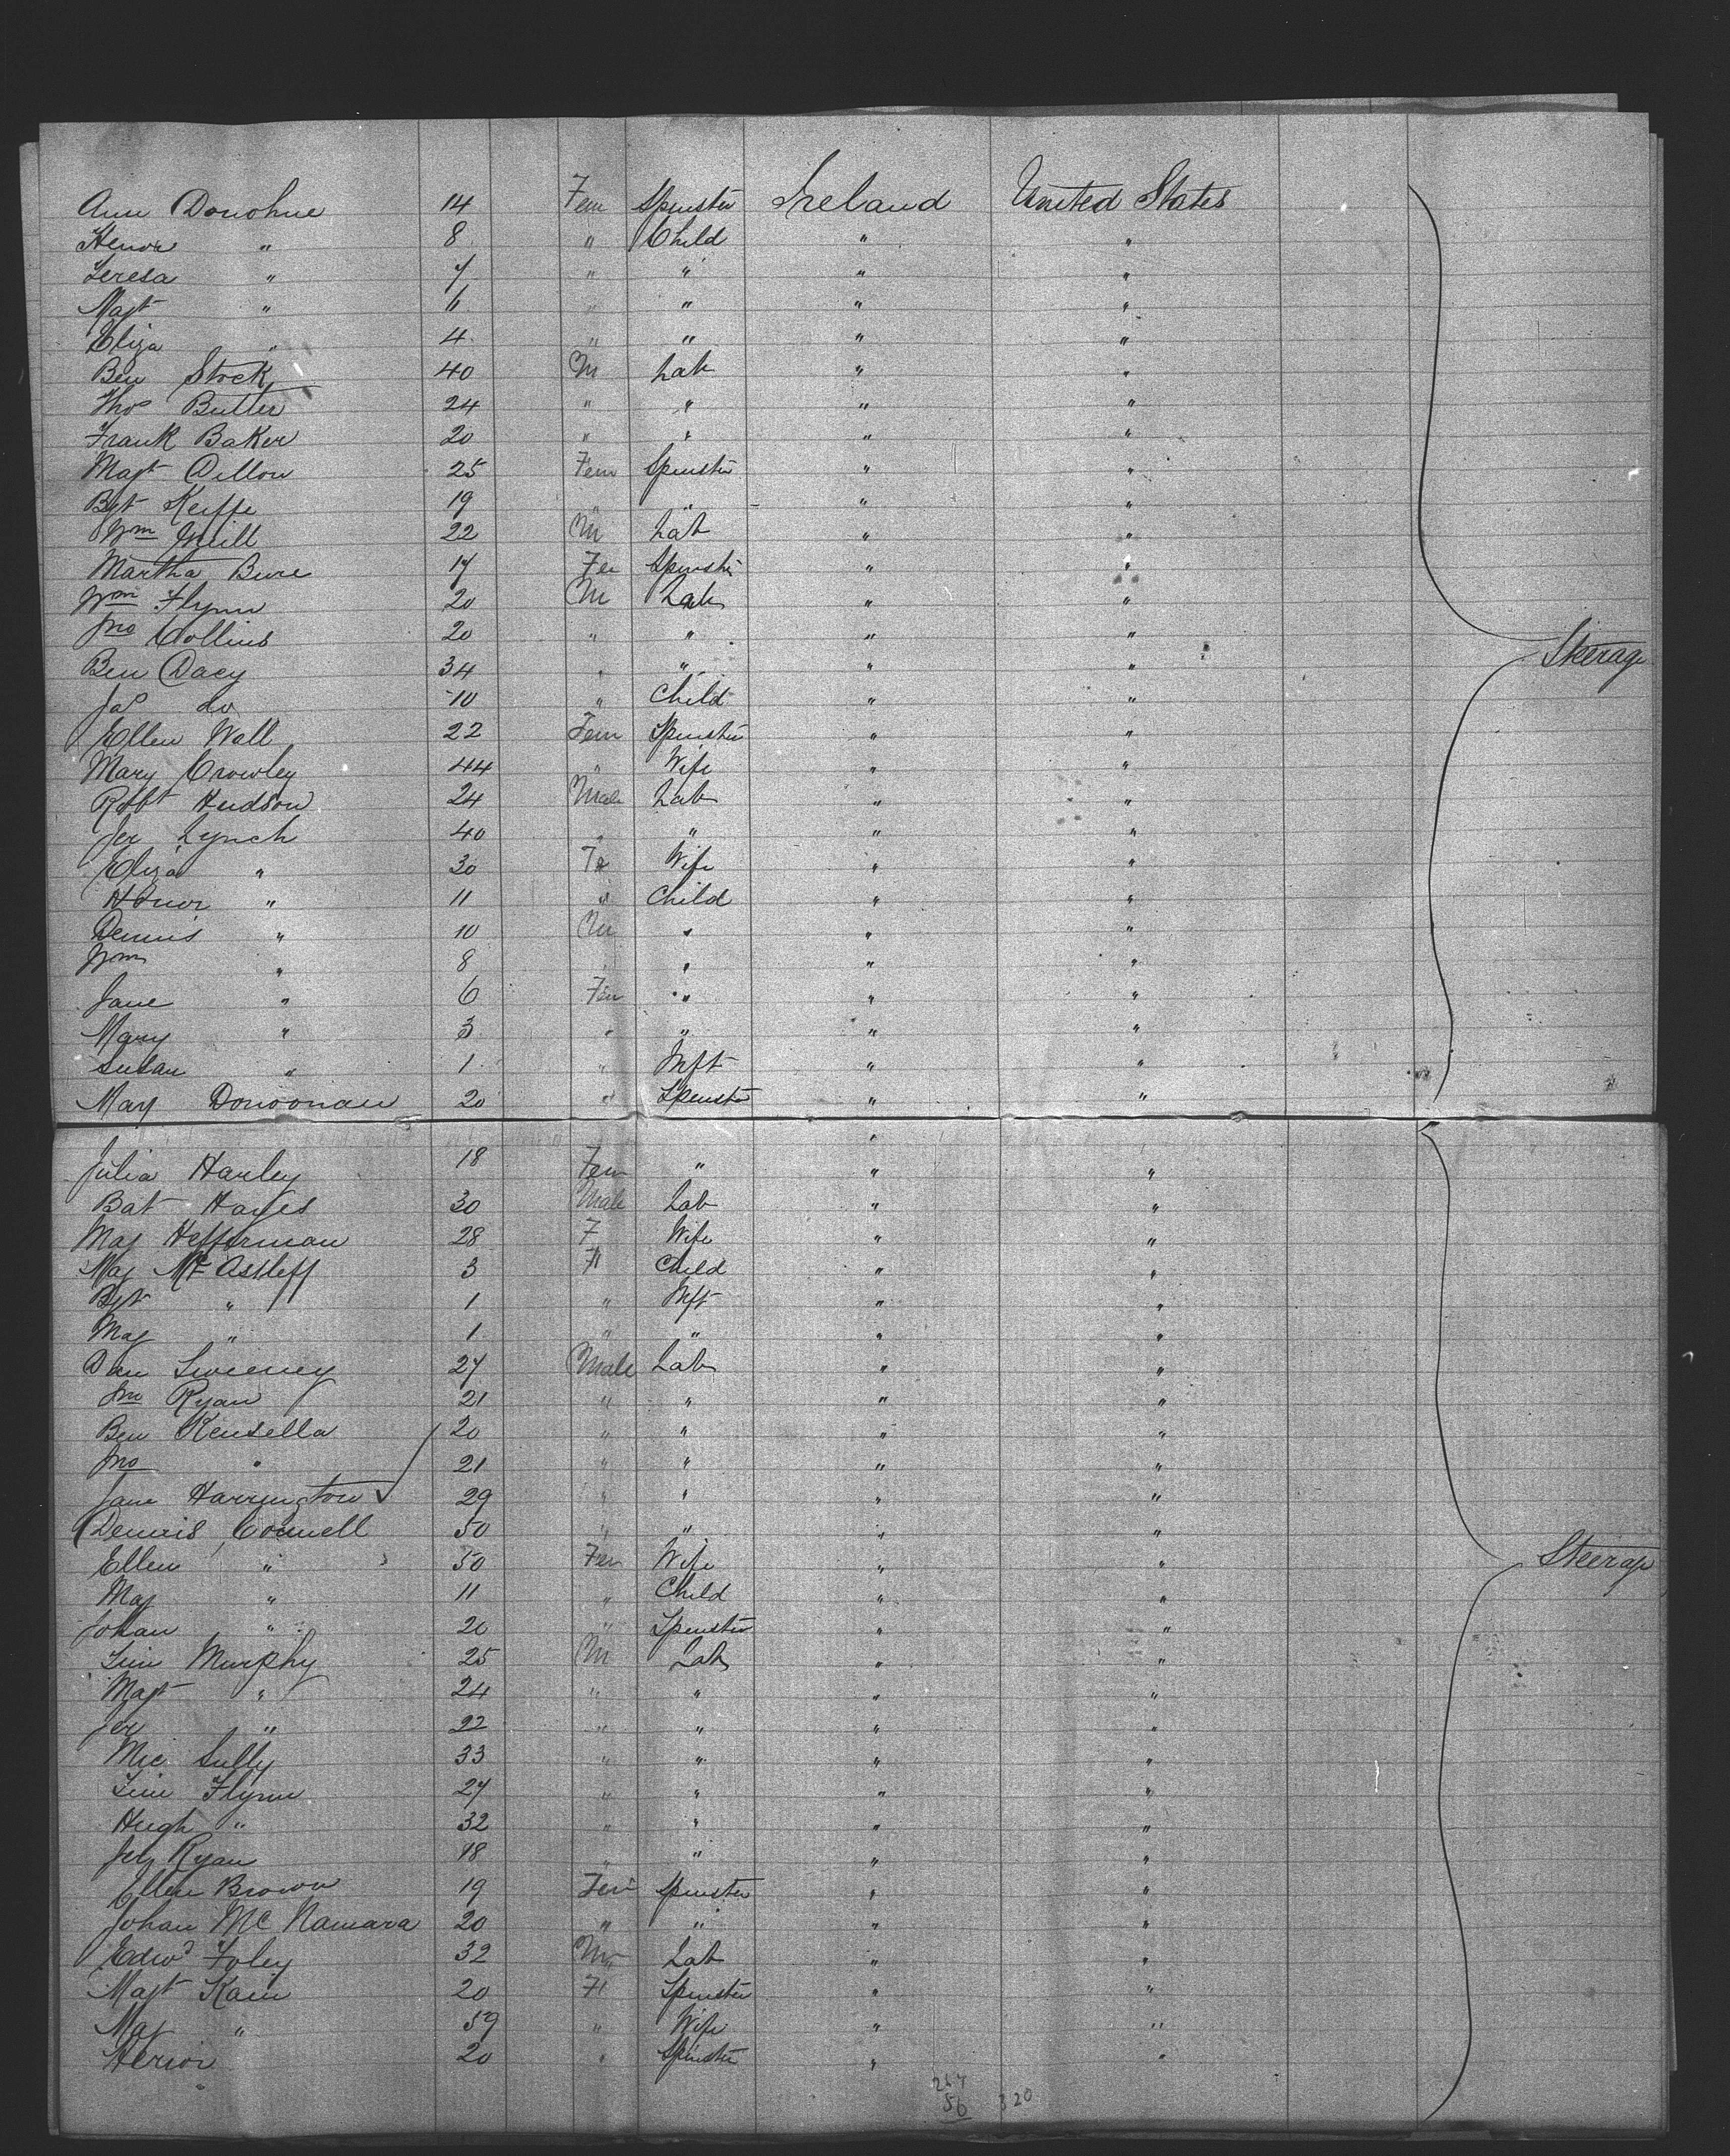 Ann Donohue 14 Fem Spinster Ireland United States
Honor " 8 " Child " "
Teresa " 7 " " " "
Magt " 11 " " " "
Eliza " 4 " " " "
Ben Stock 40 M Lab " "
Thos Butler 24 " " " "
Frank Baker 20 " " " "
Magt Dillon 25 Fem Spinster " "
Bgt Keiffe 19 " " " "
Wm Quill 22 M Lab " "
Martha 17 Fe Spinster " "
Wm Flynn 20 M Lab " "
Jno Collins 20 " " " "
Steerage
Ben Dacy 34 " " " "
Jas do 10 " Child " "
Ellen Wall 22 Fem Spinster " "
Mary Crowley 44 " Wife " "
Robt Hudson 24 Male Lab " "
Jer Lynch 40 " " " "
Eliza " 30 Fe Wife " "
Honor " 11 " Child " "
Dennis " 10 M " " "
Wm " 8 " " " "
Jane " 6 Fem " " "
Mary " 3 " " " "
Susan " 1 " Inft " "
Mary Donoonan 20 " Spinster " "
Julia Harley 18 Fem " " "
Bat Hayes 30 Male Lab " "
May Hefferman 28 F Wife " "
May 3 F Child " "
Bgt " 1 " Inft " "
May " 1 " " " "
Dan Sweeney 27 Male Lab " "
Jno Ryan 21 " " " "
Ben Kensella 20 " " " "
Jno " 21 " " " "
Jane Harrington 29 " " " "
Dennis Connell 50 " " " "
Ellen " 50 Fem Wife " "
Steerage
May " 11 " Child " "
Johan " 20 " Spinster " "
Tim Murphy 25 M Lab " "
Magt " 24 " " " "
Jer " 22 " " " "
Mic Sully 33 " " " "
Tim Flynn 27 " " " "
Hugh " 32 " " " "
Jer Ryan 18 " " " "
Ellen Brown 19 Fem Spinster " "
Johan Mc Namara 20 " " " "
Edwd Foley 32 M Lab " "
Magt Kain 20 F Spinster " "
May " 59 " Wife " "
Honor " 20 " Spinster " "
56 320